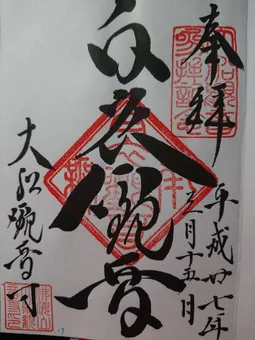 奉拝
平成廿七年
三月十五日
白衣観音
大船観音寺